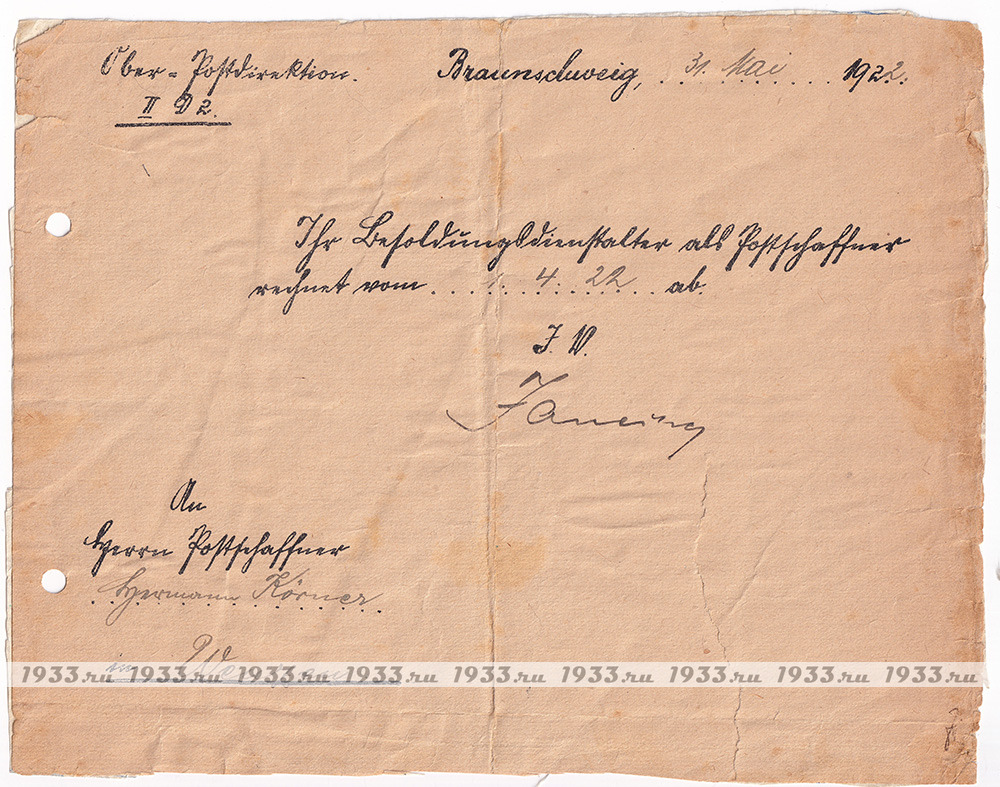 Ober-Postdirektion. Braunschweig, 31. Mai 1922.
II D 2.
Ihr Besoldungsdienstalter als Postschaffner
rechnet vom 1. 4. 22 ab.
I. V.
An
Herrn Postschaffner
Hermann Körner
in
1933.ru 1933.ru 1933.ru 1933.ru 1933.ru 1933.ru 1933.ru 1933.ru 1933.ru